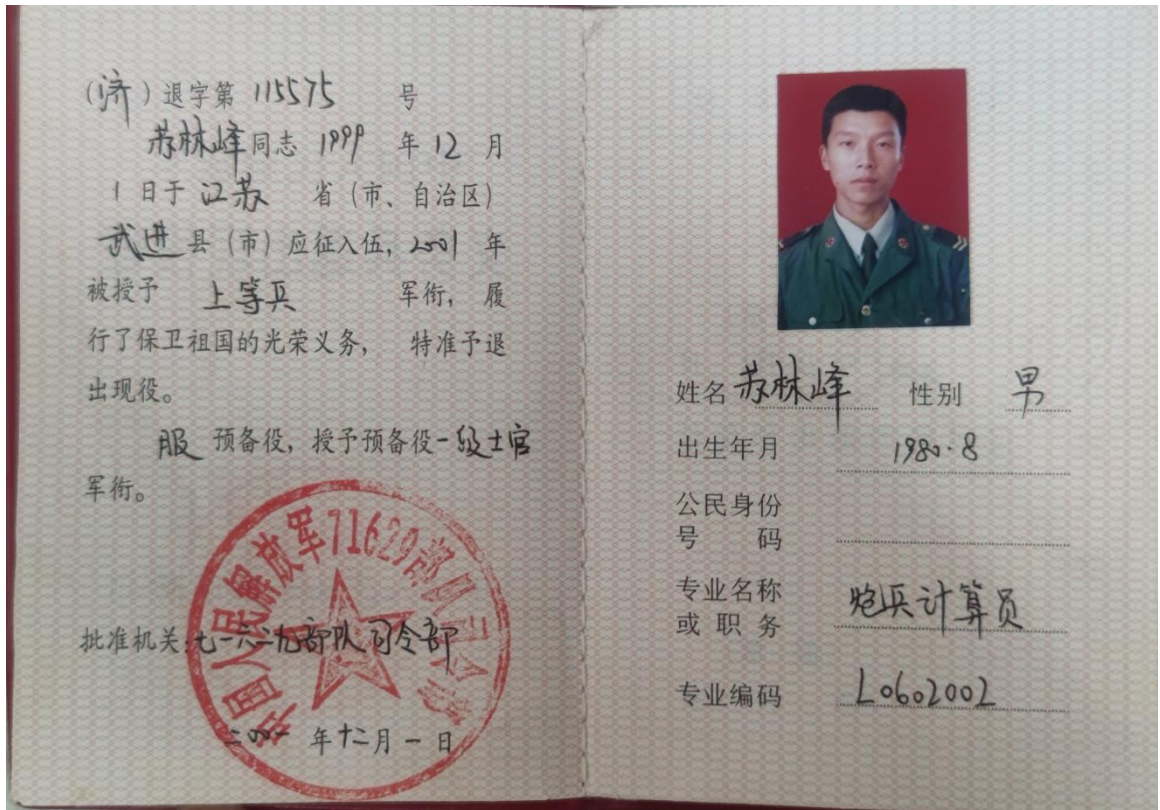 (济)退字第 115575 号
苏林峰同志 1999 年 12 月
1 日于 江苏 省(市、自治区)
武进县(市)应征入伍, 2001 年
被授予 上等兵 军衔, 履
行了保卫祖国的光荣义务, 特准予退
出现役。
服 预备役, 授予预备役一级士官
军衔。
中国人民解放军71629部队司令部
批准机关:七一六二九部队司令部
二00一年十二月一日
姓名 苏林峰 性别 男
出生年月 1980.8
公民身份
号 码
专业名称
或 职 务 炮兵计算员
专业编码 L0602002